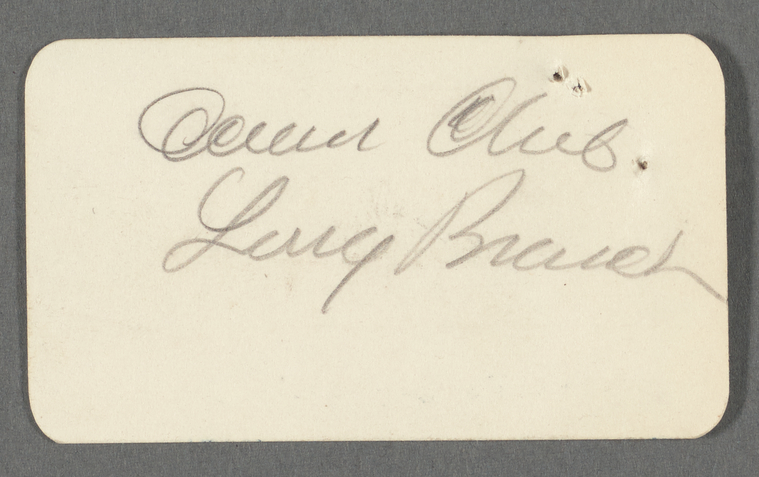 Ocean Club.
Long Branch